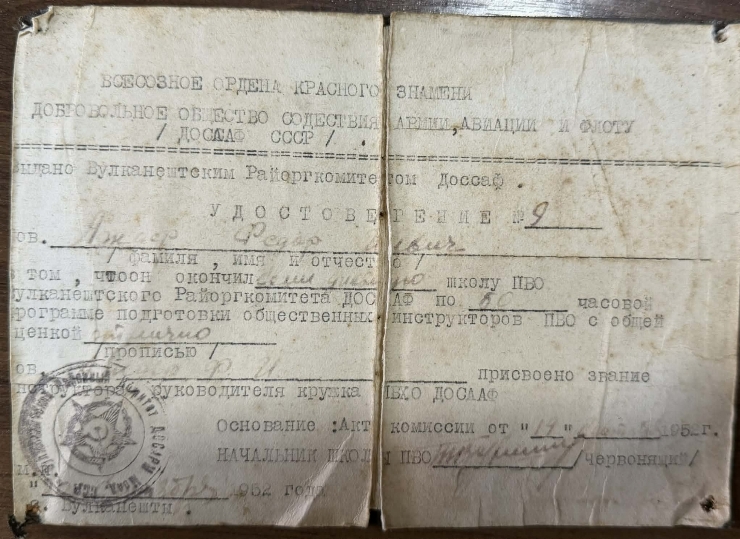 ВСЕСОЗНОЕ ОРДЕНА КРАСНОГО ЗНАМЕНИ
ДОБРОВОЛЬНОЕ ОБЩЕСТВО СОДЕСТВИЯ АРМИИ, АВИАЦИИ И ФЛОТУ
/ ДОСААФ СССР /
ыдано Вулканештским Райоргкомитетом Доссаф.
УДОСТОВЕРЕНИЕ № 9
ов. Федор
/ фамилия, имя и отчество /
в том, чтоон окончил школу ПВО
улканештского Райоргкомитета ДОСААФ по часовой
рограмме подготовки общественных инструкторов ПВО с общей
ценкой отлично
/прописью/
ов. Ф. И. присвоено звание
нструктора руководителя кружка ПВХО ДОСААФ
Основание :Акт комиссии от "19" 1952г.
НАЧАЛЬНИК ШКОЛЫ ПВО /червоняцк/
М.П.
1952 года
с. Вулканешти.